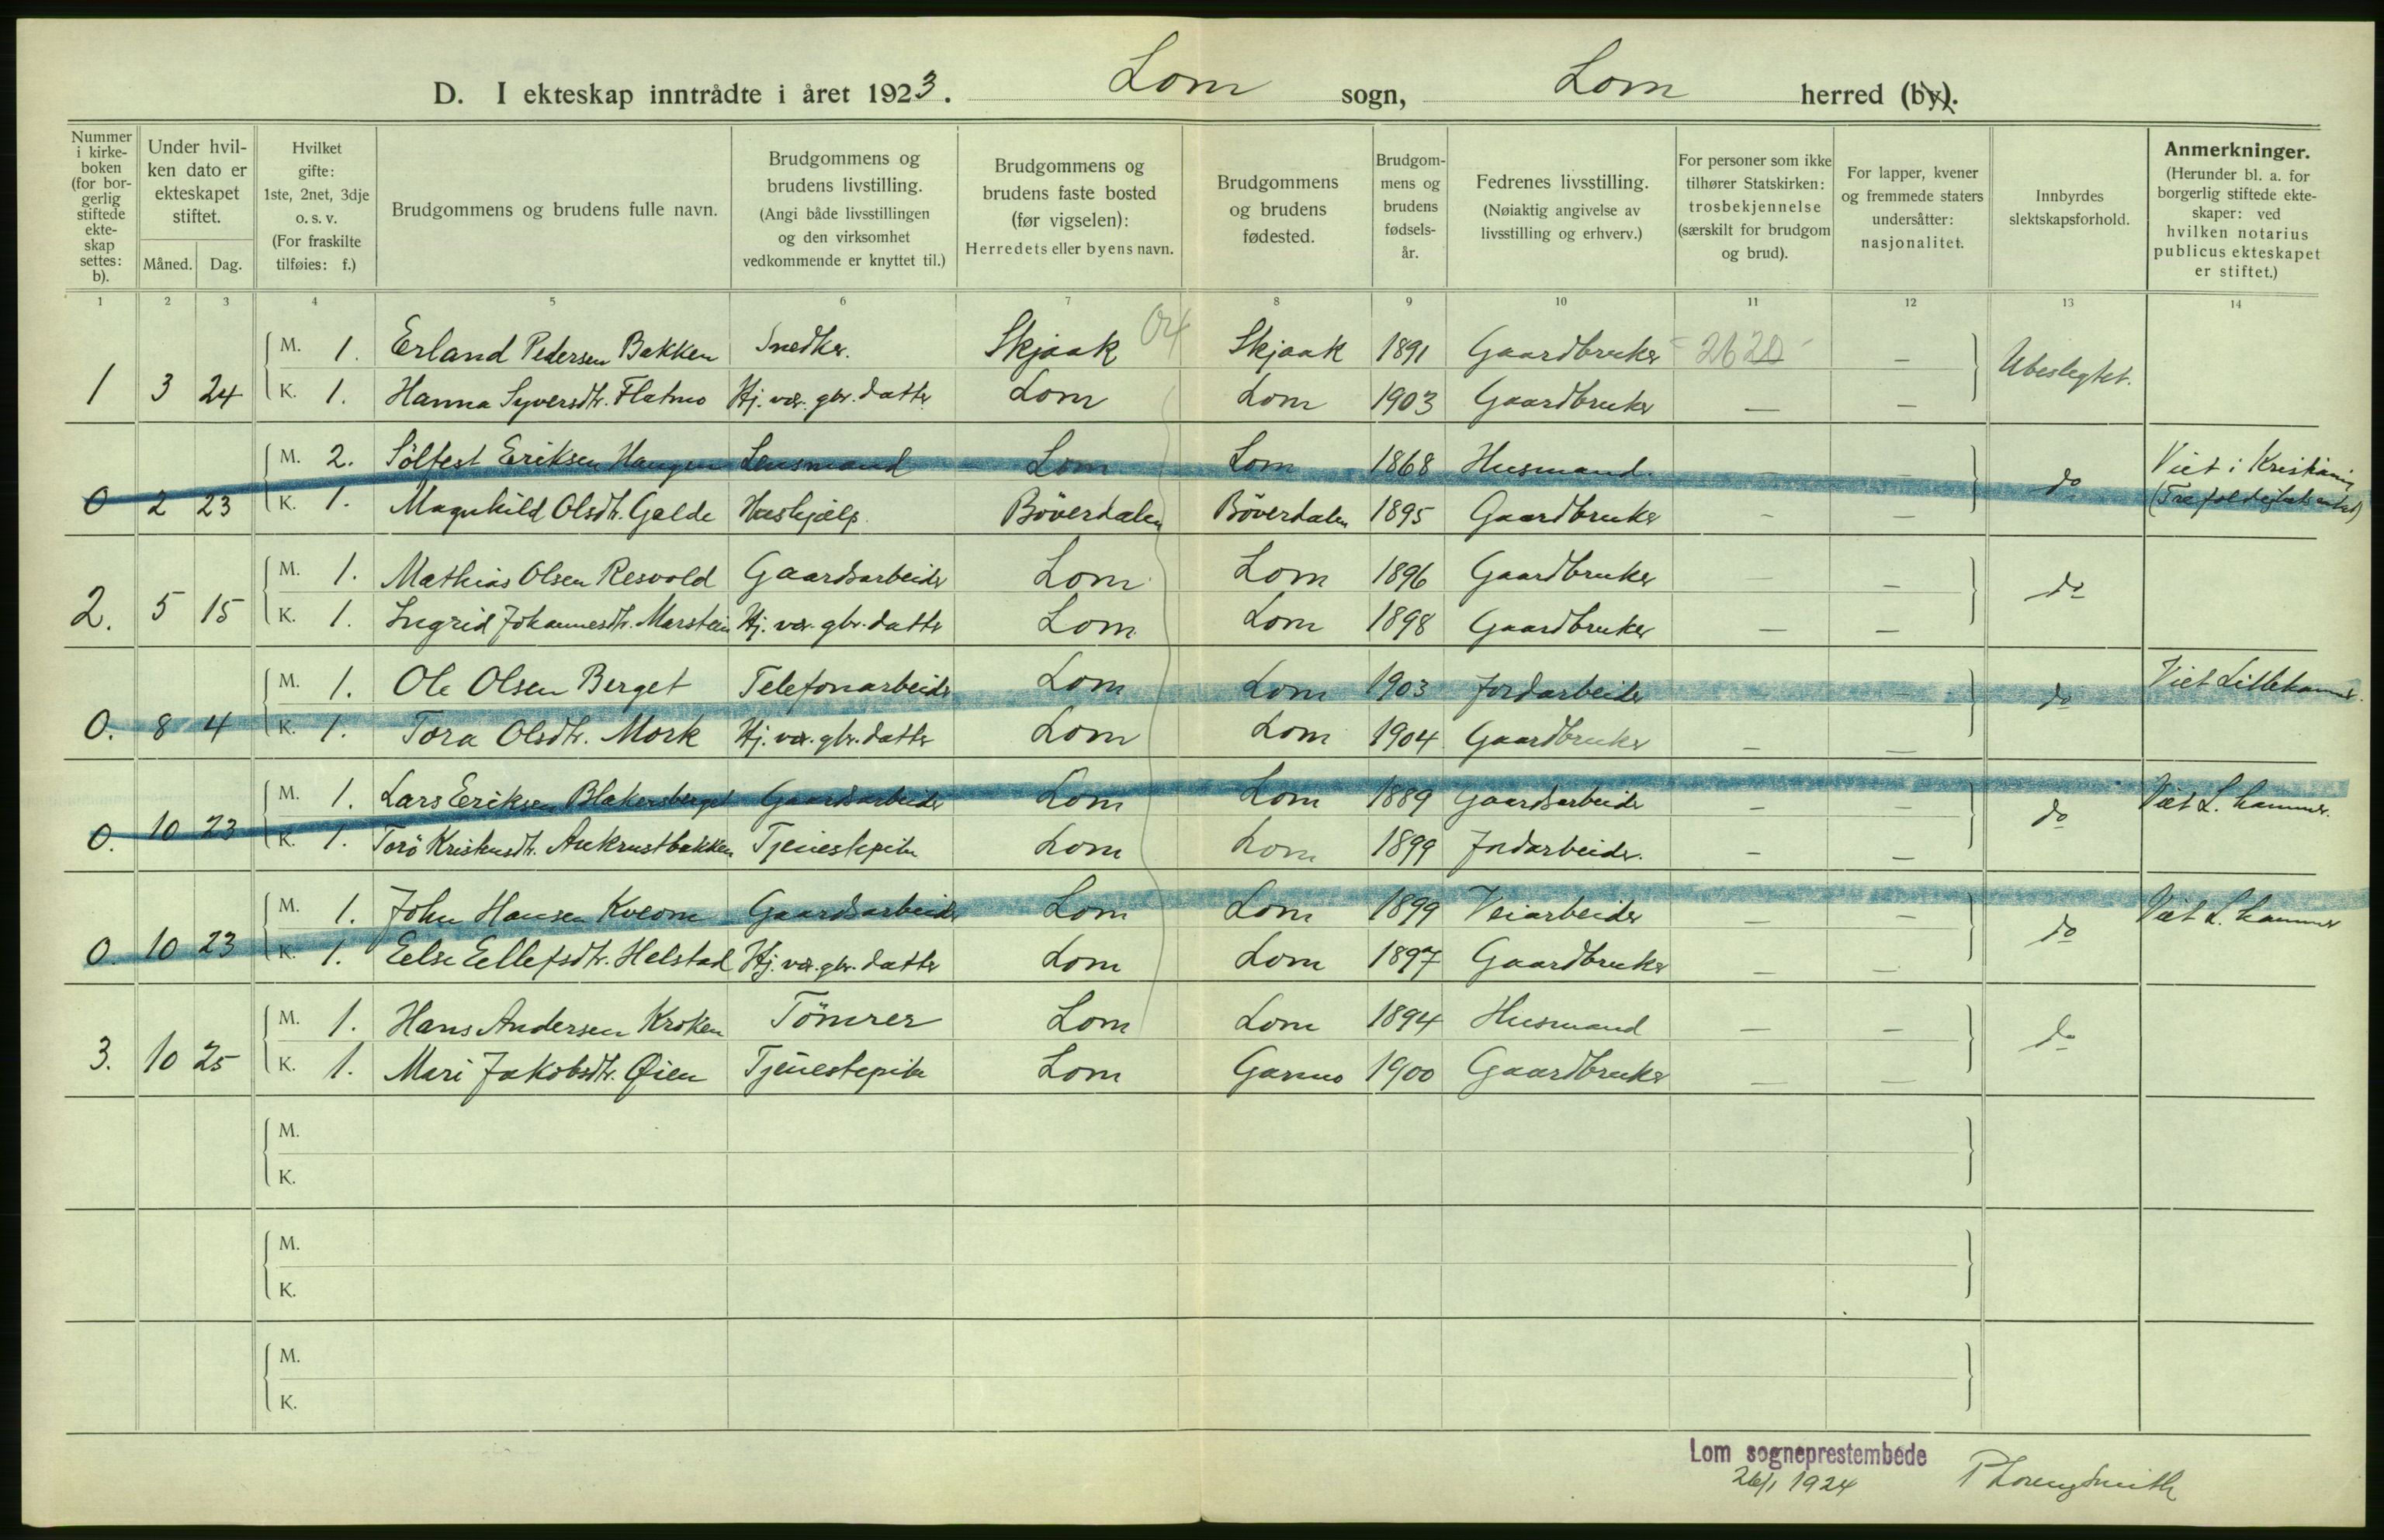 D. I ekteskap inntrådte i året 1923. Lom sogn, Lom herred (by).
Nummer i kirkeboken (for borgerlig stiftede ekteskap settes: b).
Under hvilken dato er ekteskapet stiftet.
Måned. Dag.
Hvilket gifte: 1ste, 2net, 3dje o. s. v. (For fraskilte tilføies: f.)
Brudgommens og brudens fulle navn.
Brudgommens og brudens livstilling. (Angi både livsstillingen og den virksomhet vedkommende er knyttet til.)
Brudgommens og brudens faste bosted (før vigselen): Herredets eller byens navn.
Brudgommens og brudens fødested.
Brudgommens og brudens fødselsår.
Fedrenes livsstilling. (Nøiaktig angivelse av livsstilling og erhverv.)
For personer som ikke tilhører Statskirken: trosbekjennelse (særskilt for brudgom og brud).
For lapper, kvener og fremmede staters undersåtter: nasjonalitet.
Innbyrdes slektskapsforhold.
Anmerkninger. (Herunder bl. a. for borgerlig stiftede ekteskaper: ved hvilken notarius publicus ekteskapet er stiftet.)
1 2 3 4 5 6 7 8 9 10 11 12 13 14
M. 1. Erland Pedersen Bakken Snedker. Skjaak 04 Skjaak 1891 Gaardbruker 2620 — Ubeslegtet.
1 3 24 K. 1. Hanna Syversdtr. Flatmo Hj. vær. gbr. datter Lom Lom 1903 Gaardbruker — —
M. 2. Söltest Eriksen Haugen Lensmand Lom Lom 1868 Husmand. — — do Viet i Kristiania
0 2 23 K. 1. Magnhild Olsdtr. Galde Hushjælp. Böverdalen Böverdalen 1895 Gaardbruker — —
M. 1. Mathias Olsen Resvold Gaardsarbeider Lom Lom 1896 Gaardbruker — — do
2. 5 15 K. 1. Ingrid Johannesdtr. Marstein Hj. vær. gbr. datter Lom Lom 1898 Gaardbruker — —
M. 1. Ole Olsen Berget Telefonarbeider Lom Lom 1903 Jordarbeider do Viet Lillehammer.
0. 8 4 K. 1. Tora Olsdtr. Mork Hj. vær. gbr. datter Lom Lom 1904 Gaardbruker — —
M. 1. Lars Eriksen Blakersberget Gaardsarbeider Lom Lom 1889 Gaardsarbeider — — do Viet L. hammer.
0. 10 23 K. 1. Torö Kristensdtr. Aukrustbakken Tjenestepike Lom Lom 1899 Jordarbeider. — —
M. 1. John Hansen Kveom Gaardsarbeider Lom Lom 1899 Veiarbeider — — do Viet L. hammer
0. 10 23 K. 1. Eelse Eellefsdtr. Helstad Hj. vær. gbr. datter Lom Lom 1897 Gaardbruker — —
M. 1. Hans Andersen Kroken Tömrer Lom Lom 1894 Husmand — — do
3. 10 25 K. 1. Mari Jakobsdtr. Øien Tjenestepike Lom Garmo 1900 Gaardbruker — —
M.
K.
M.
K.
M.
K.
Lom sogneprestembede
26/1 1924 P Lorenz Smith